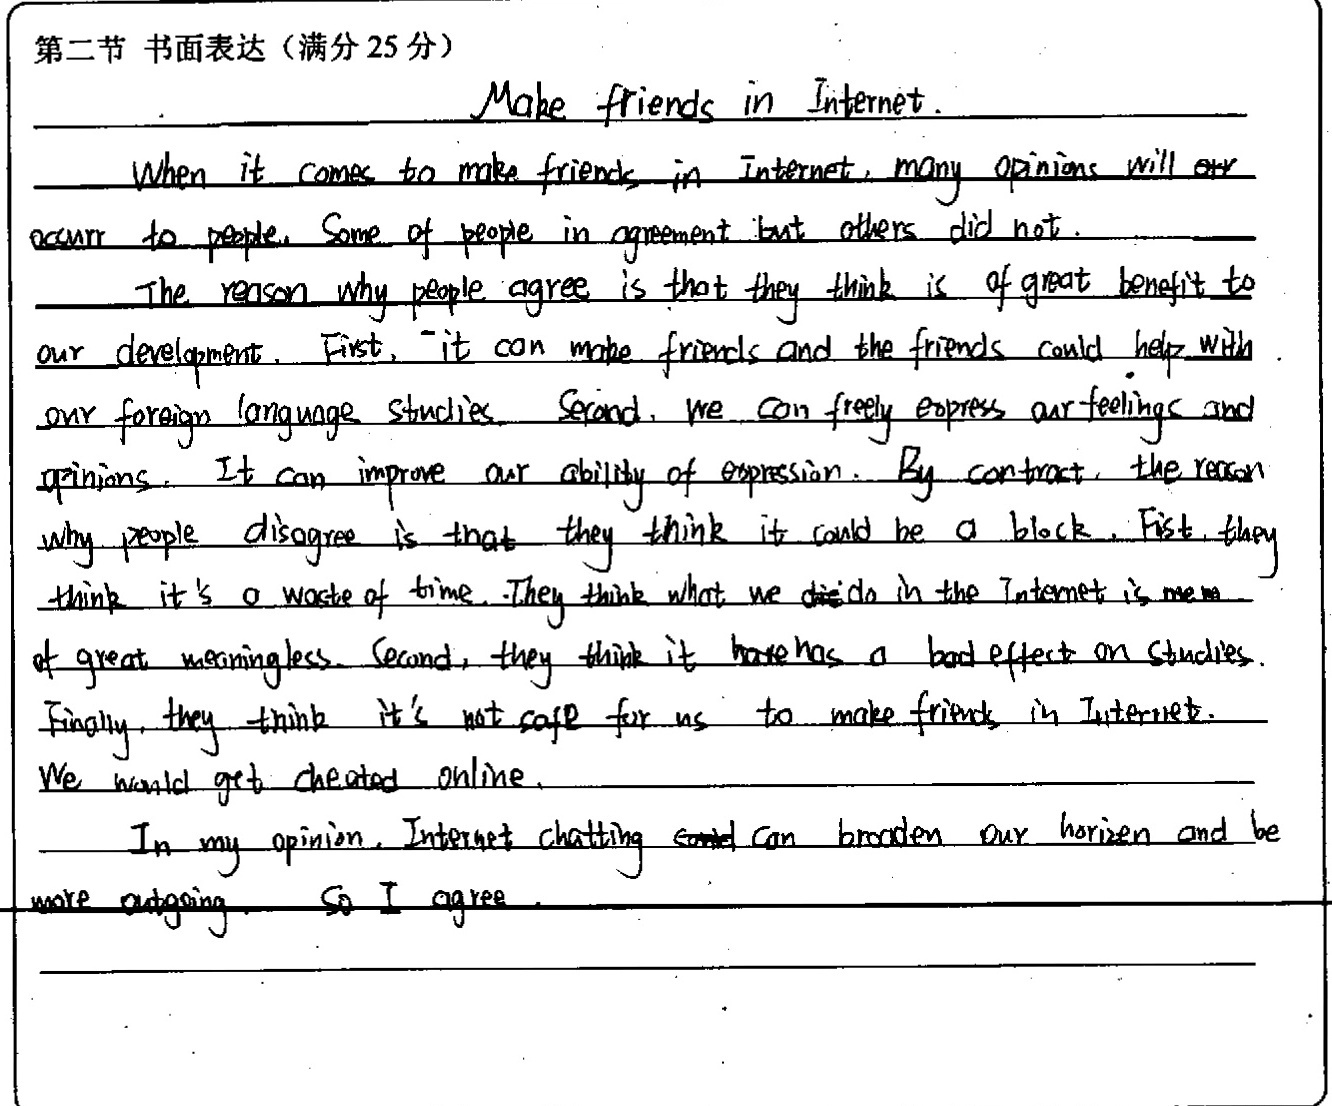 第二节 书面表达（满分 25 分）
Make friends in Internet.
When it comes to make friends in Internet, many opinions will
occurr to people. Some of people in agreement but others did not.
The reason why people agree is that they think is of great benefit to
our development. First, it can make friends and the friends could help with
our foreign language studies Second, we can freely express our feelings and
opinions. It can improve our ability of expression. By contract, the reason
why people disagree is that they think it could be a block. Fist, they
think it's a waste of time. They think what we do in the Internet is
of great meaningless. Second, they think it has a bad effect on studies.
Finally, they think it's not safe for us to make friends in Internet.
We would get cheated online.
In my opinion, Internet chatting can broaden our horizen and be
more outgoing. So I agree.